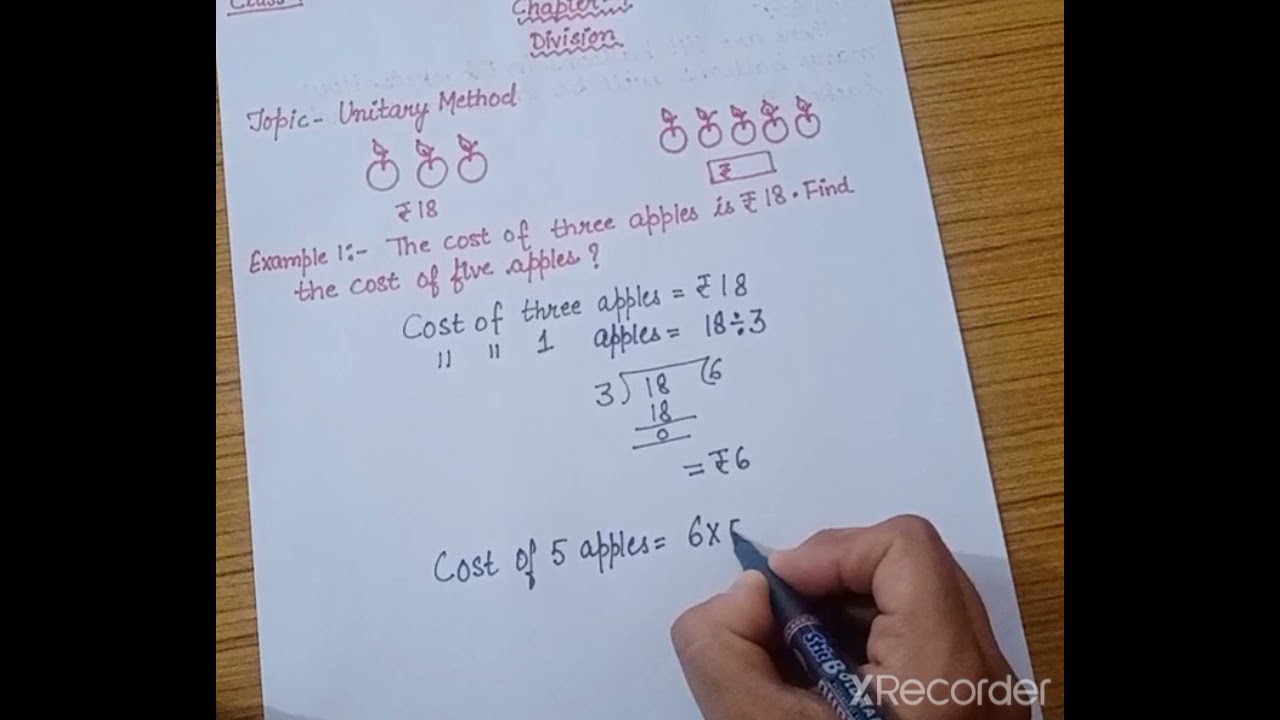 Class
Chapter
Division
Topic- Unitary Method
₹18
₹
Example 1:- The cost of three apples is ₹18. Find
the cost of five apples?
Cost of three apples = ₹18
" " 1 apples = 18÷3
3) 18 (6
18
0
= ₹6
Cost of 5 apples = 6x5
XRecorder